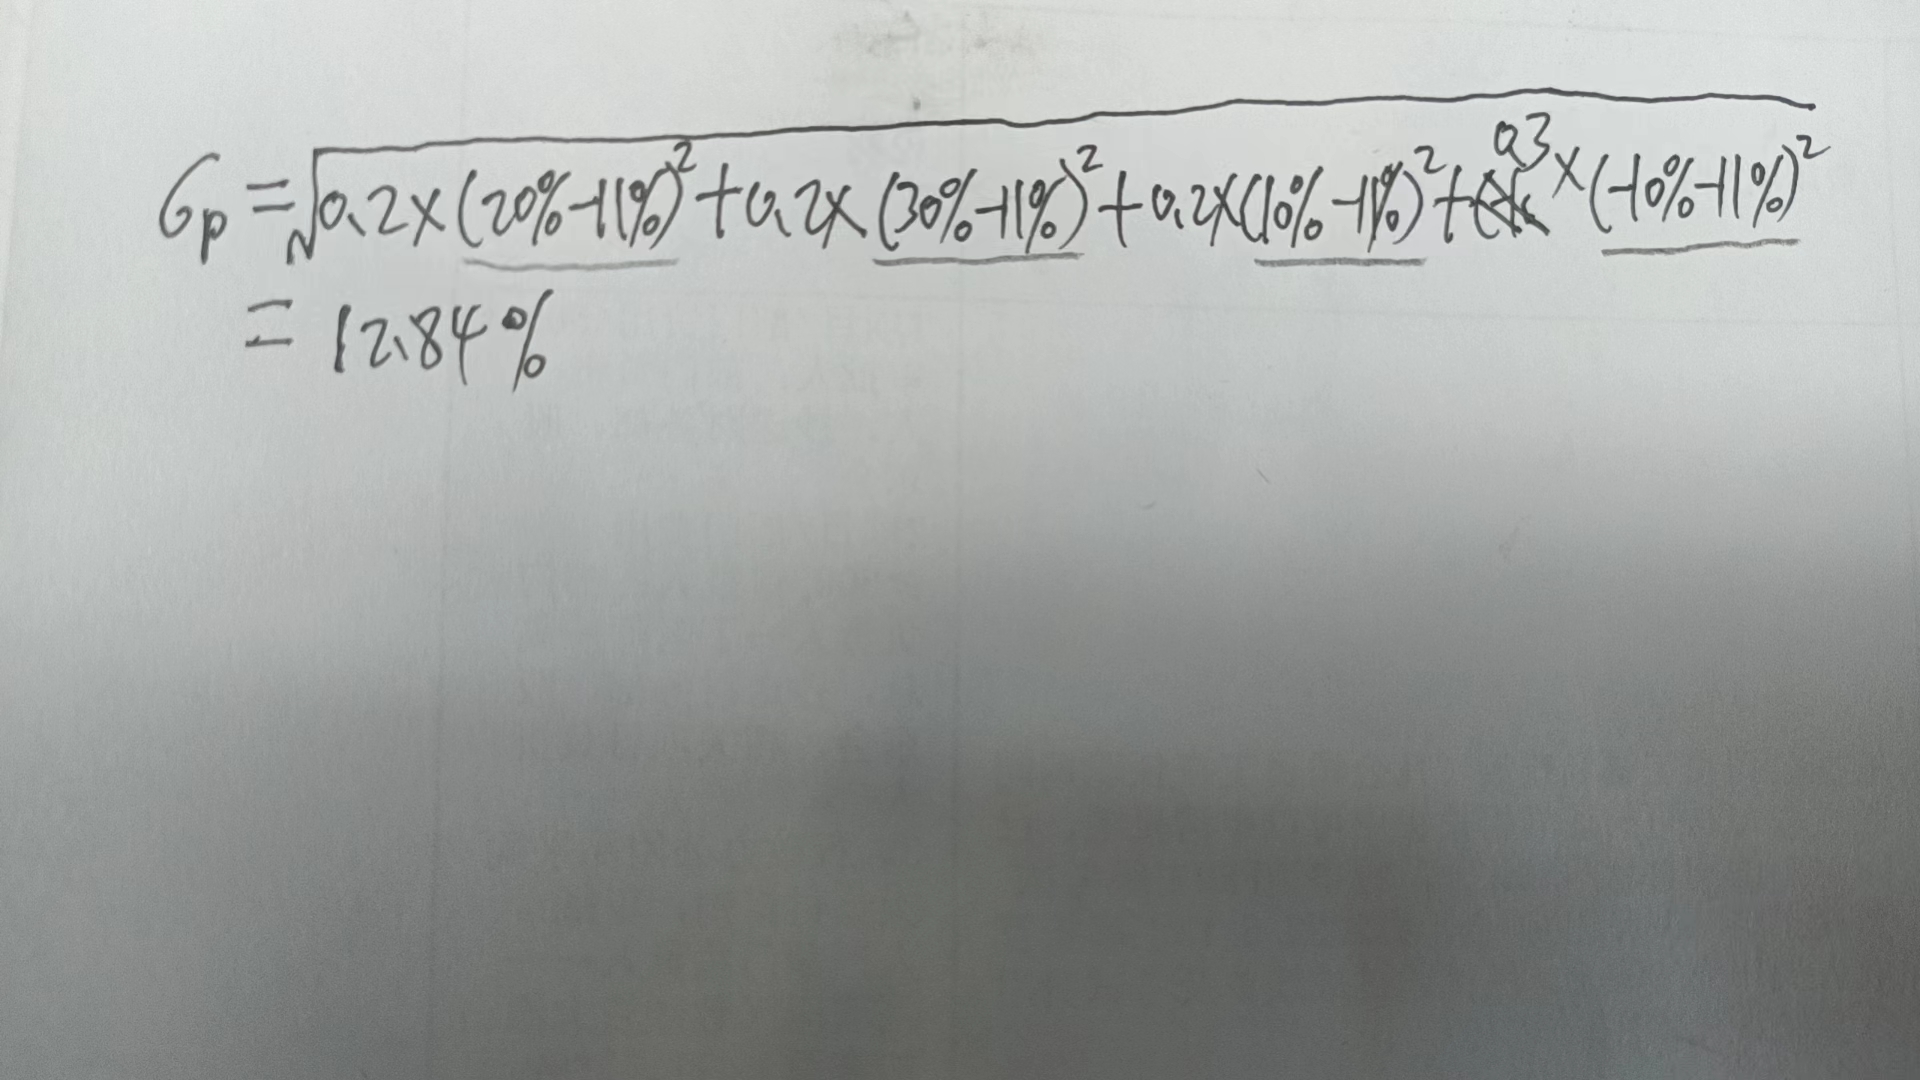 σp = √0.2×(20%-11%)²+0.2×(30%-11%)²+0.2×(10%-11%)²+0.3×(-10%-11%)²
= 12.84%